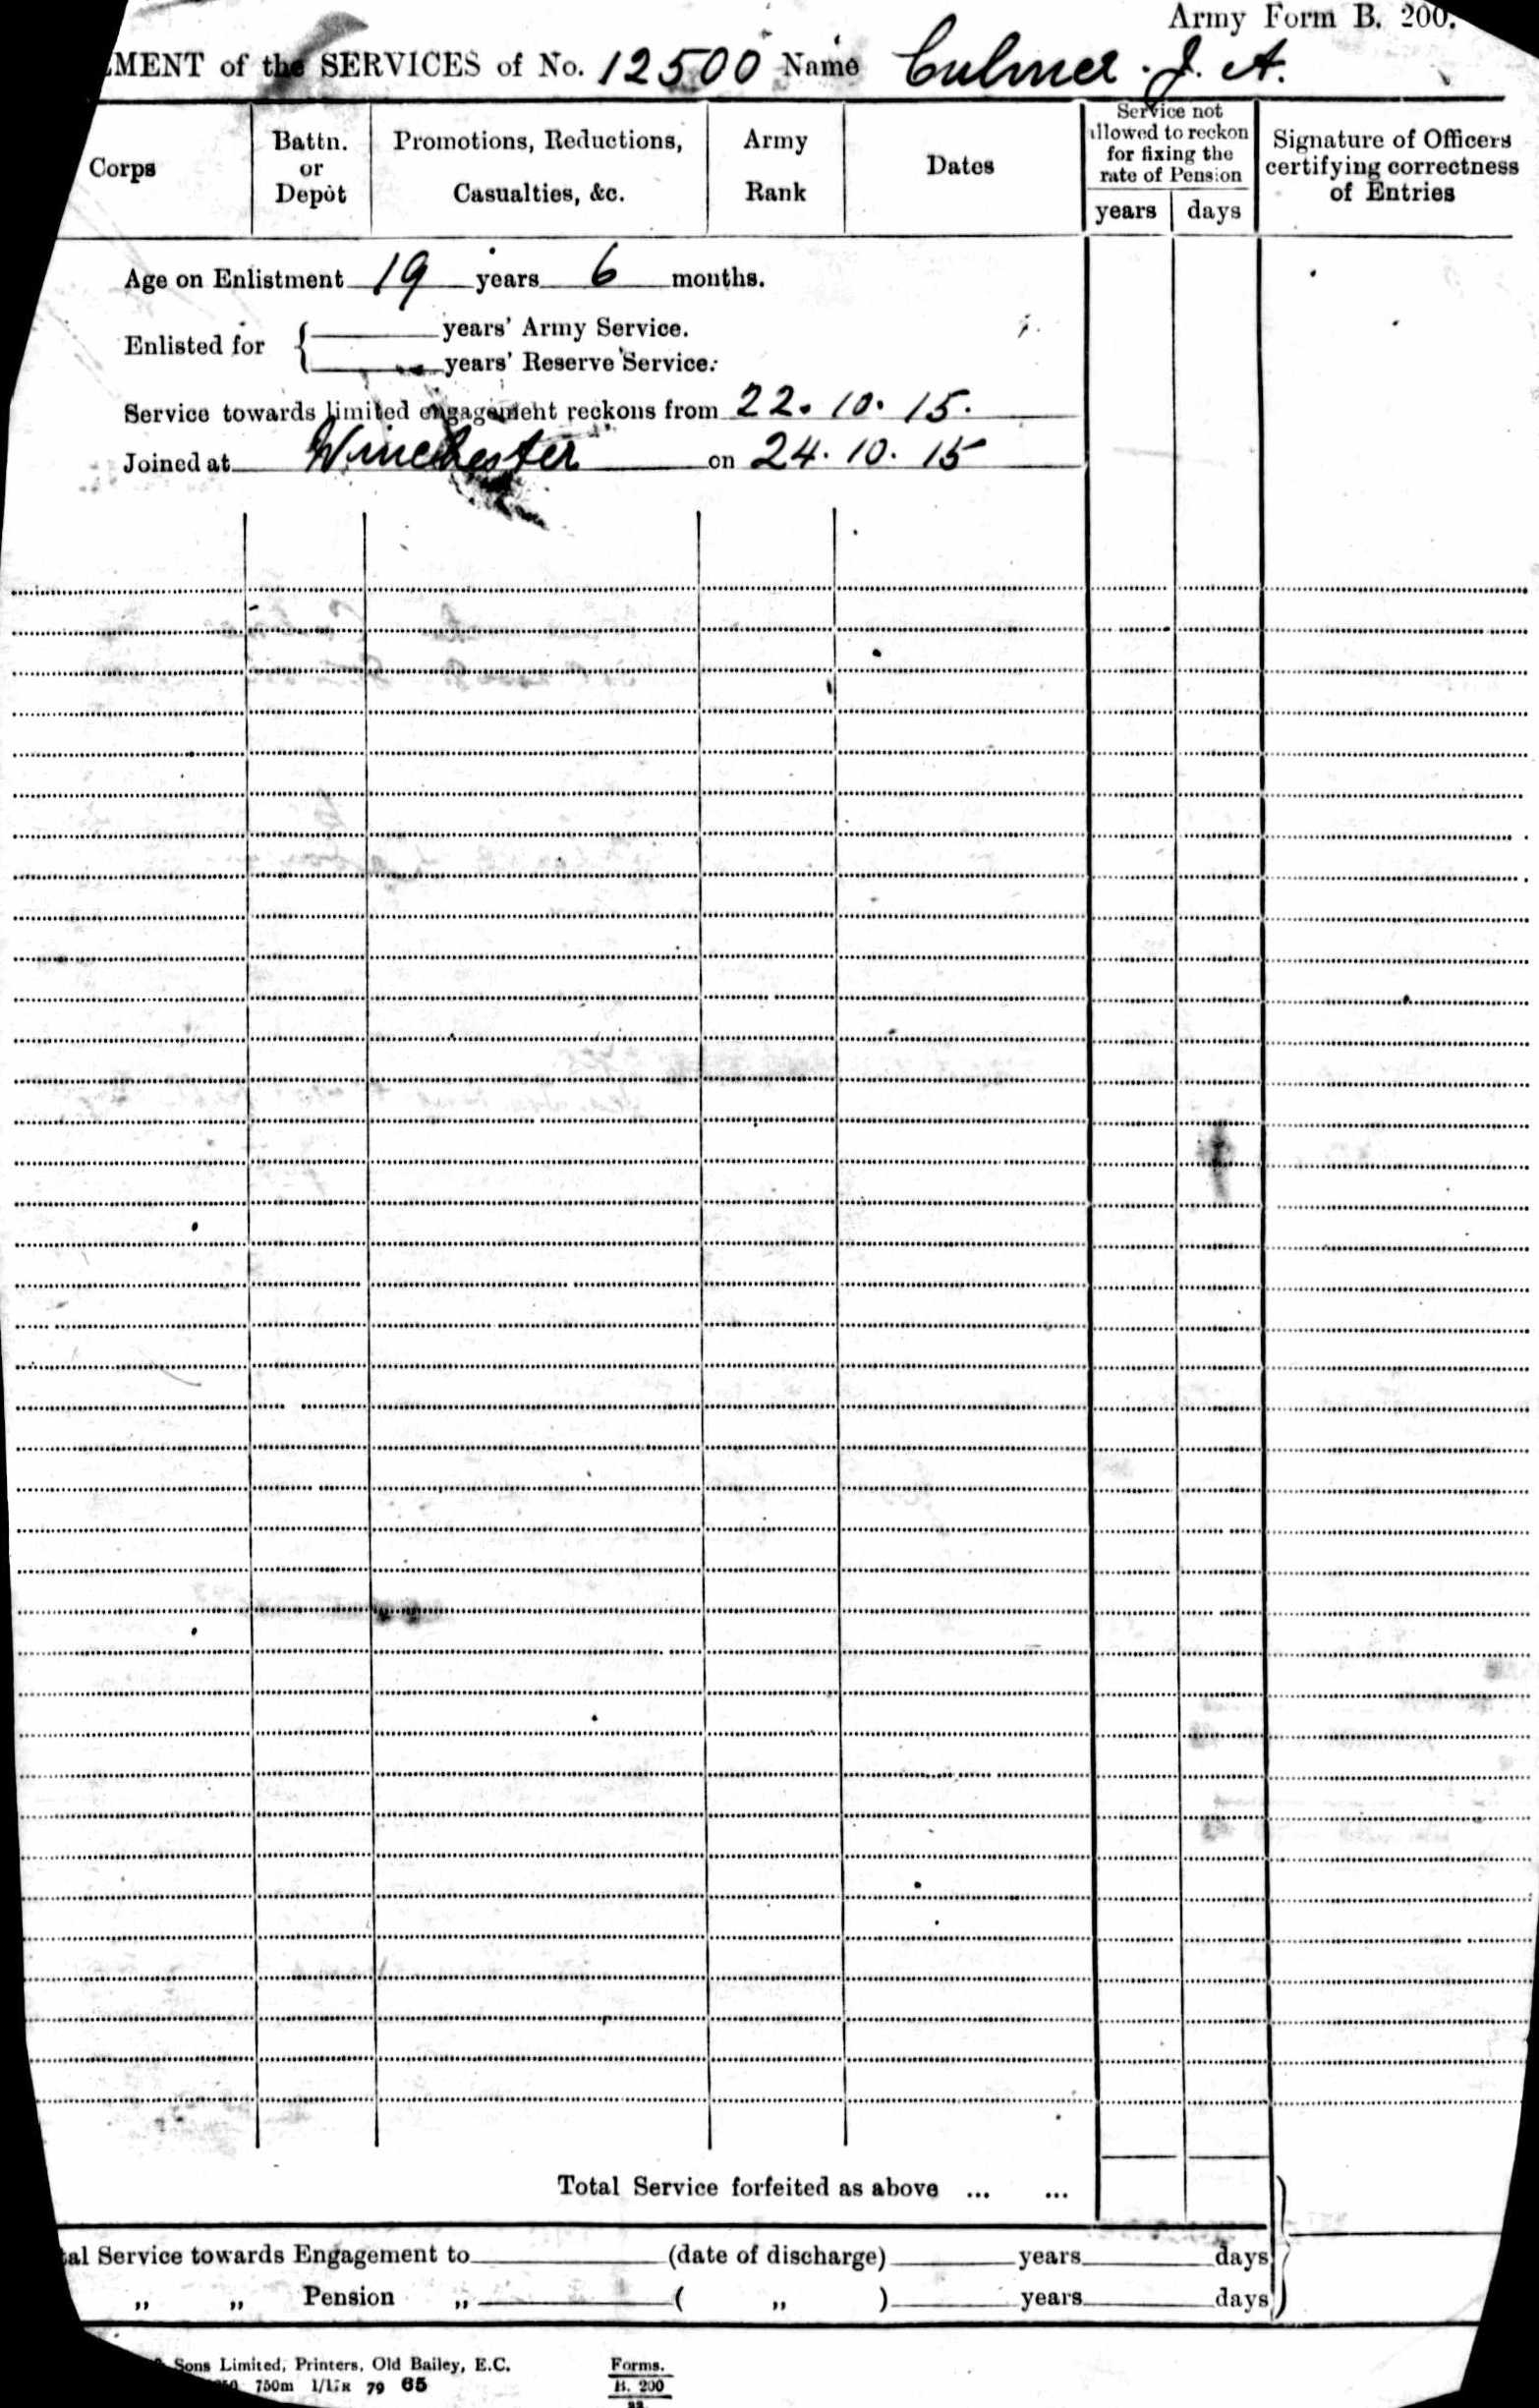 Army Form B. 200.
MENT of the SERVICES of No. 12500 Name Culmer. J. A.
Corps
Battn. or Depôt
Promotions, Reductions, Casualties, &c.
Army Rank
Dates
Service not allowed to reckon for fixing the rate of Pension
years days
Signature of Officers certifying correctness of Entries
Age on Enlistment 19 years 6 months.
Enlisted for { years' Army Service.
years' Reserve Service.
Service towards limited engagement reckons from 22. 10. 15.
Joined at Winchester on 24. 10. 15
Total Service forfeited as above ... ...
al Service towards Engagement to (date of discharge) years days
„ „ Pension „ ( „ ) years days
Sons Limited, Printers, Old Bailey, E.C.
750m 79 65
Forms.
B. 200